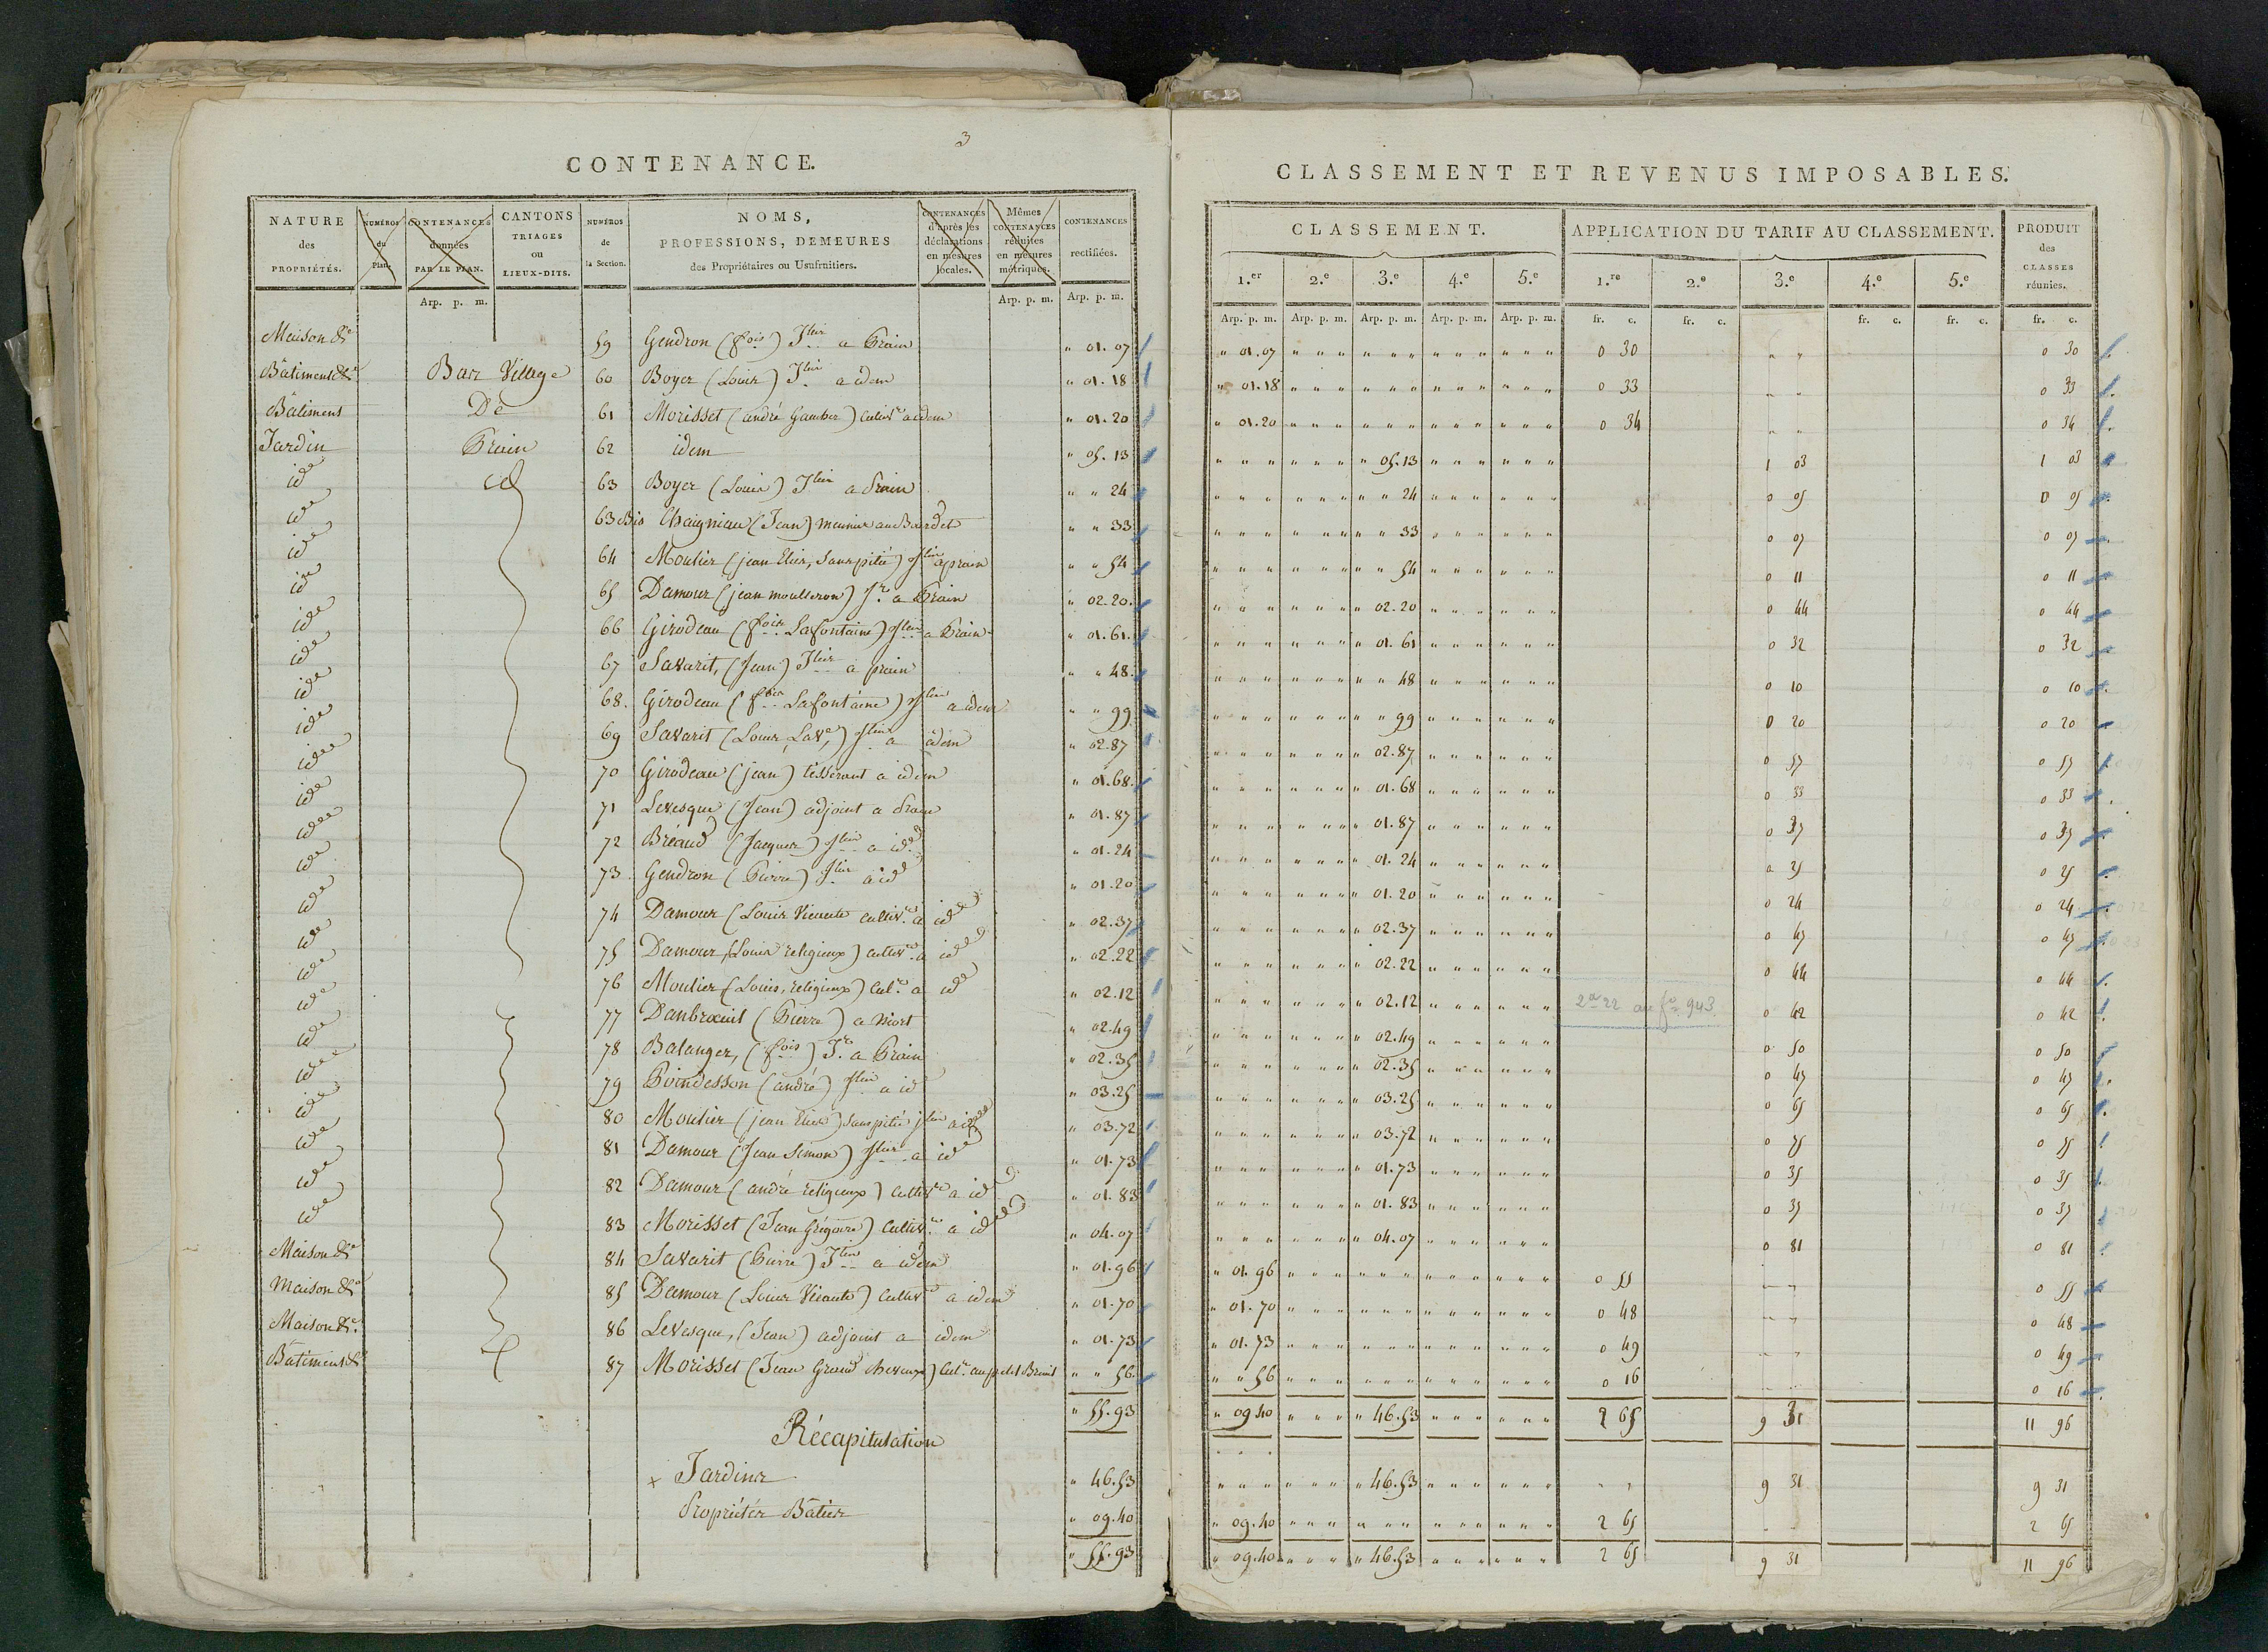 3
CONTENANCE.
NATURE des PROPRIÉTÉS. NUMÉROS du Plan. CONTENANCES données PAR LE PLAN. CANTONS TRIAGES ou LIEUX-DITS. NUMÉROS de la Section. NOMS, PROFESSIONS, DEMEURES des Propriétaires ou Usufruitiers. CONTENANCES d'après les déclarations en mesures locales. Mêmes CONTENANCES réduites en mesures métriques. CONTENANCES rectifiées.
Arp. p. m. Arp. p. m. Arp. p. m.
Maison &c 59 Gendron (fois) Jlier a Prain " 01.07
Bâtiment &c Bas Village 60 Boyer (Louis) Jlier a idem " 01.18
Bâtiment De 61 Morisset (andré Gambier) cultivr a idem " 01.20
Jardin Prain 62 idem " 05.13
id id 63 Boyer (Louis) Jlier a Prain " " 24
id 63 Bis Chaigniau (Jean) meunier au Bourdet " " 33
id 64 Moulier (jean Elies, Sanspitié) Jlier a prain " " 54
id 65 Damour (jean moulleron) Jr a Prain " 02.20.
id 66 Girodeau (fois Lafontaine) Jlier a Prain " 01.61.
id 67 Savarit, (Jean) Jlier a prain " " 48.
id 68. Girodeau (fois Lafontaine) Jlier a idem " " 99
id 69 Savarit (Louis, Lave,) Jlier a idem " 02.87
id 70 Girodeau (jean) tisserant a idem " 01.68.
id 71 Levesque (Jean) adjoint a Prain " 01.87
id 72 Bréaud (Jacques) Jlier a id " 01.24
id 73 Gendron (Pierre) Jlier a id " 01.20
id 74 Damour (Louis Vicente cultivr a id " 02.37
id 75 Damour (Louis religieux) cultivr a id " 02.22
id 76 Moulier (Louis, religieux) culr a id " 02.12
id 77 Danbroeuil (Pierre) a Niort " 02.49
id 78 Balanger, (fois) Jr a Prain " 02.35
id 79 Poindesson (andré) Jlier a id " 03.25
id 80 Moulier (jean Elies) Sanspitié jlier a id " 03.72
id 81 Damour (Jean Simon) Jlier a id " 01.73
id 82 Damour (andré religieux) cultivr a id " 01.83
id 83 Morisset (Jean Grégoire) Cultivr a id " 04.07
Maison &c 84 Savarit (Pierre) Jlier a idem " 01.96
Maison &c 85 Damour (Louis Vicente) Cultivr a idem " 01.70
Maison &c. 86 Levesque, (Jean) adjoint a idem " 01.73
Bâtiment &c 87 Morisset (Jean Grand cheveux) Culr au petit Breuil " " 56.
" 55.93
Récapitulation
x Jardins " 46.53
Propriétés Bâties " 09.40
" 55.93
CLASSEMENT ET REVENUS IMPOSABLES.
CLASSEMENT. APPLICATION DU TARIF AU CLASSEMENT. PRODUIT des CLASSES réunies.
1.er 2.e 3.e 4.e 5.e 1.re 2.e 3.e 4.e 5.e
Arp. p. m. Arp. p. m. Arp. p. m. Arp. p. m. Arp. p. m. fr. c. fr. c. fr. c. fr. c. fr. c.
" 01.07 0 30 0 30
" 01.18 0 33 0 33
" 01.20 0 34 0 34
" 05.13 1 03 1 03
" " 24 0 05 0 05
" " 33 0 07 0 07
" " 54 0 11 0 11
" 02.20 0 44 0 44
" 01.61 0 32 0 32
" " 48 0 10 0 10
" " 99 0 20 0 20
" 02.87 0 57 0 57
" 01.68 0 33 0 33
" 01.87 0 37 0 37
" 01.24 0 25 0 25
" 01.20 0 24 0 24
" 02.37 0 47 0 47
" 02.22 0 44 0 44
" 02.12 2a 22 au fo 943 0 42 0 42
" 02.49 0 50 0 50
" 02.35 0 47 0 47
" 03.25 0 65 0 65
" 03.72 0 75 0 75
" 01.73 0 35 0 35
" 01.83 0 37 0 37
" 04.07 0 81 0 81
" 01.96 0 55 0 55
" 01.70 0 48 0 48
" 01.73 0 49 0 49
" " 56 0 16 0 16
" 09 40 " 46.53 2 65 9 31 11 96
" 46.53 9 31 9 31
" 09.40 2 65 2 65
" 09.40 " 46.53 2 65 9 31 11 96